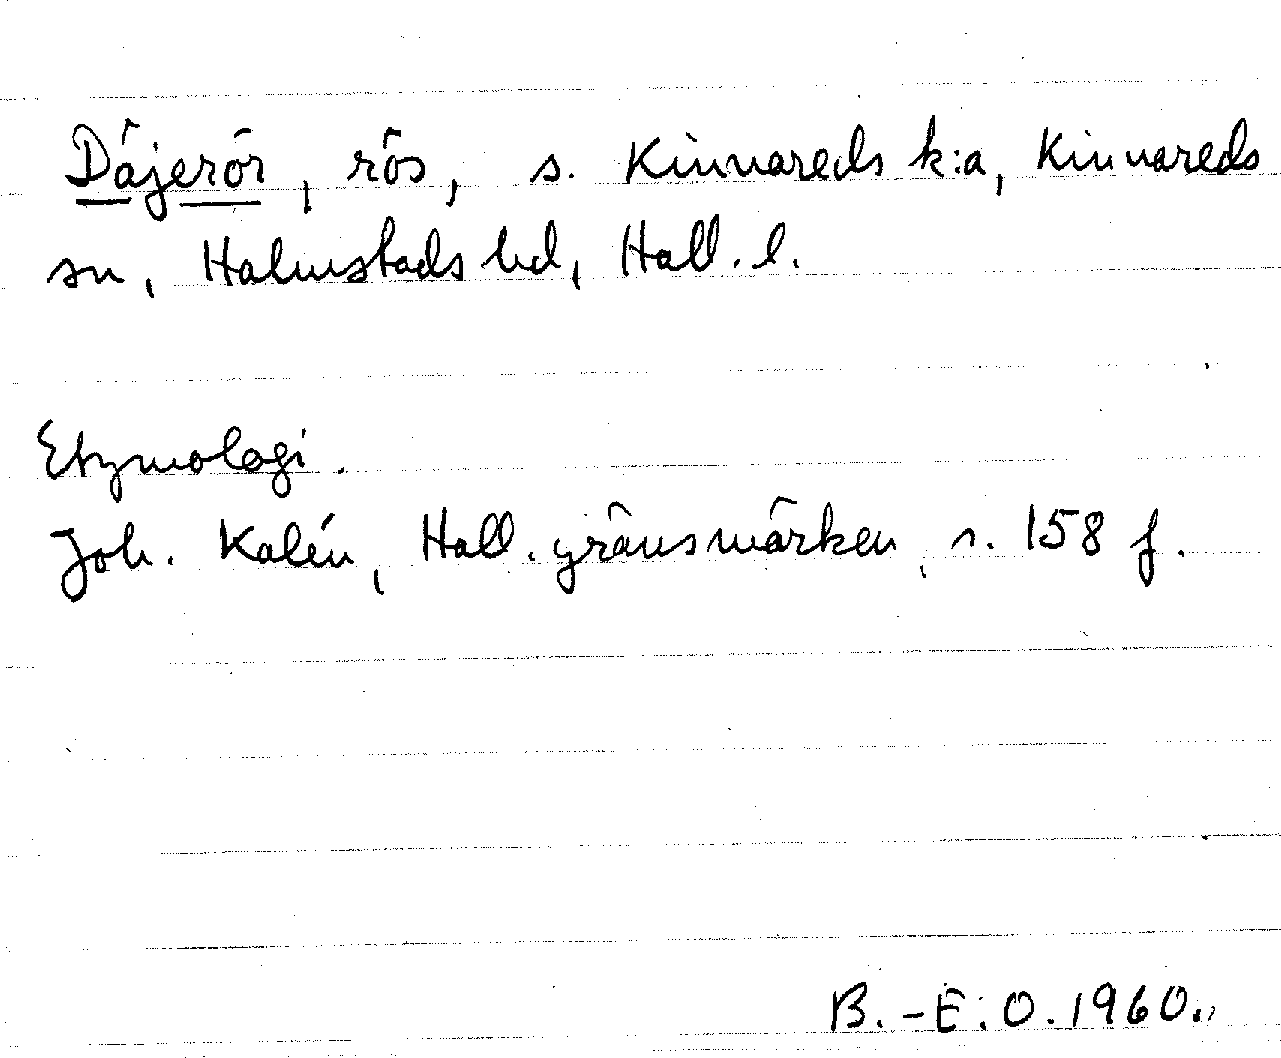 Dåjerör, rös, s. Kinnareds k:a, Kinnareds
sn, Halmstads hd, Hall. l.
Etymologi.
Joh. Kalén, Hall. gränsmärken, s. 158 f.
B.-E. O. 1960.